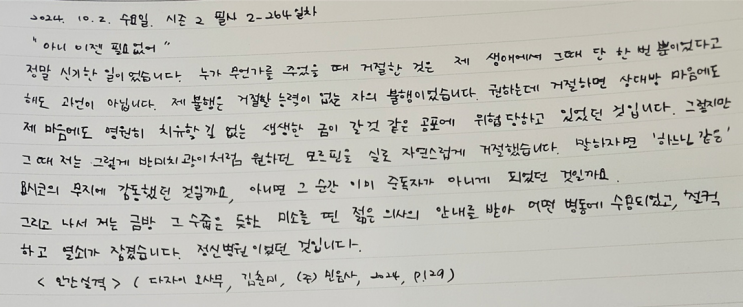 2024. 10. 2. 수요일. 시즌 2 필사 2-264일차
"아니 이젠 필요없어"
정말 신기한 일이었습니다. 누가 무언가를 주었을 때 거절한 것은 제 생애에서 그때 단 한 번 뿐이었다고
해도 과언이 아닙니다. 제 불행은 거절할 능력이 없는 자의 불행이었습니다. 권하는데 거절하면 상대방 마음에도
제 마음에도 영원히 치유할 길 없는 생생한 금이 갈 것 같은 공포에 위협 당하고 있었던 것입니다. 그렇지만
그때 저는 그렇게 반미치광이처럼 원하던 모르핀을 실로 자연스럽게 거절했습니다. 말하자면 '하느님 같은'
요시코의 무지에 감동했던 것일까요, 아니면 그 순간 이미 중독자가 아니게 되었던 것일까요.
그리고 나서 저는 금방 그 수줍은 듯한 미소를 띤 젊은 의사의 안내를 받아 어떤 병동에 수용되었고, '철컥'
하고 열쇠가 잠겼습니다. 정신병원이었던 것입니다.
<인간실격> (다자이 오사무, 김춘미, (주)민음사, 2024, p.129)